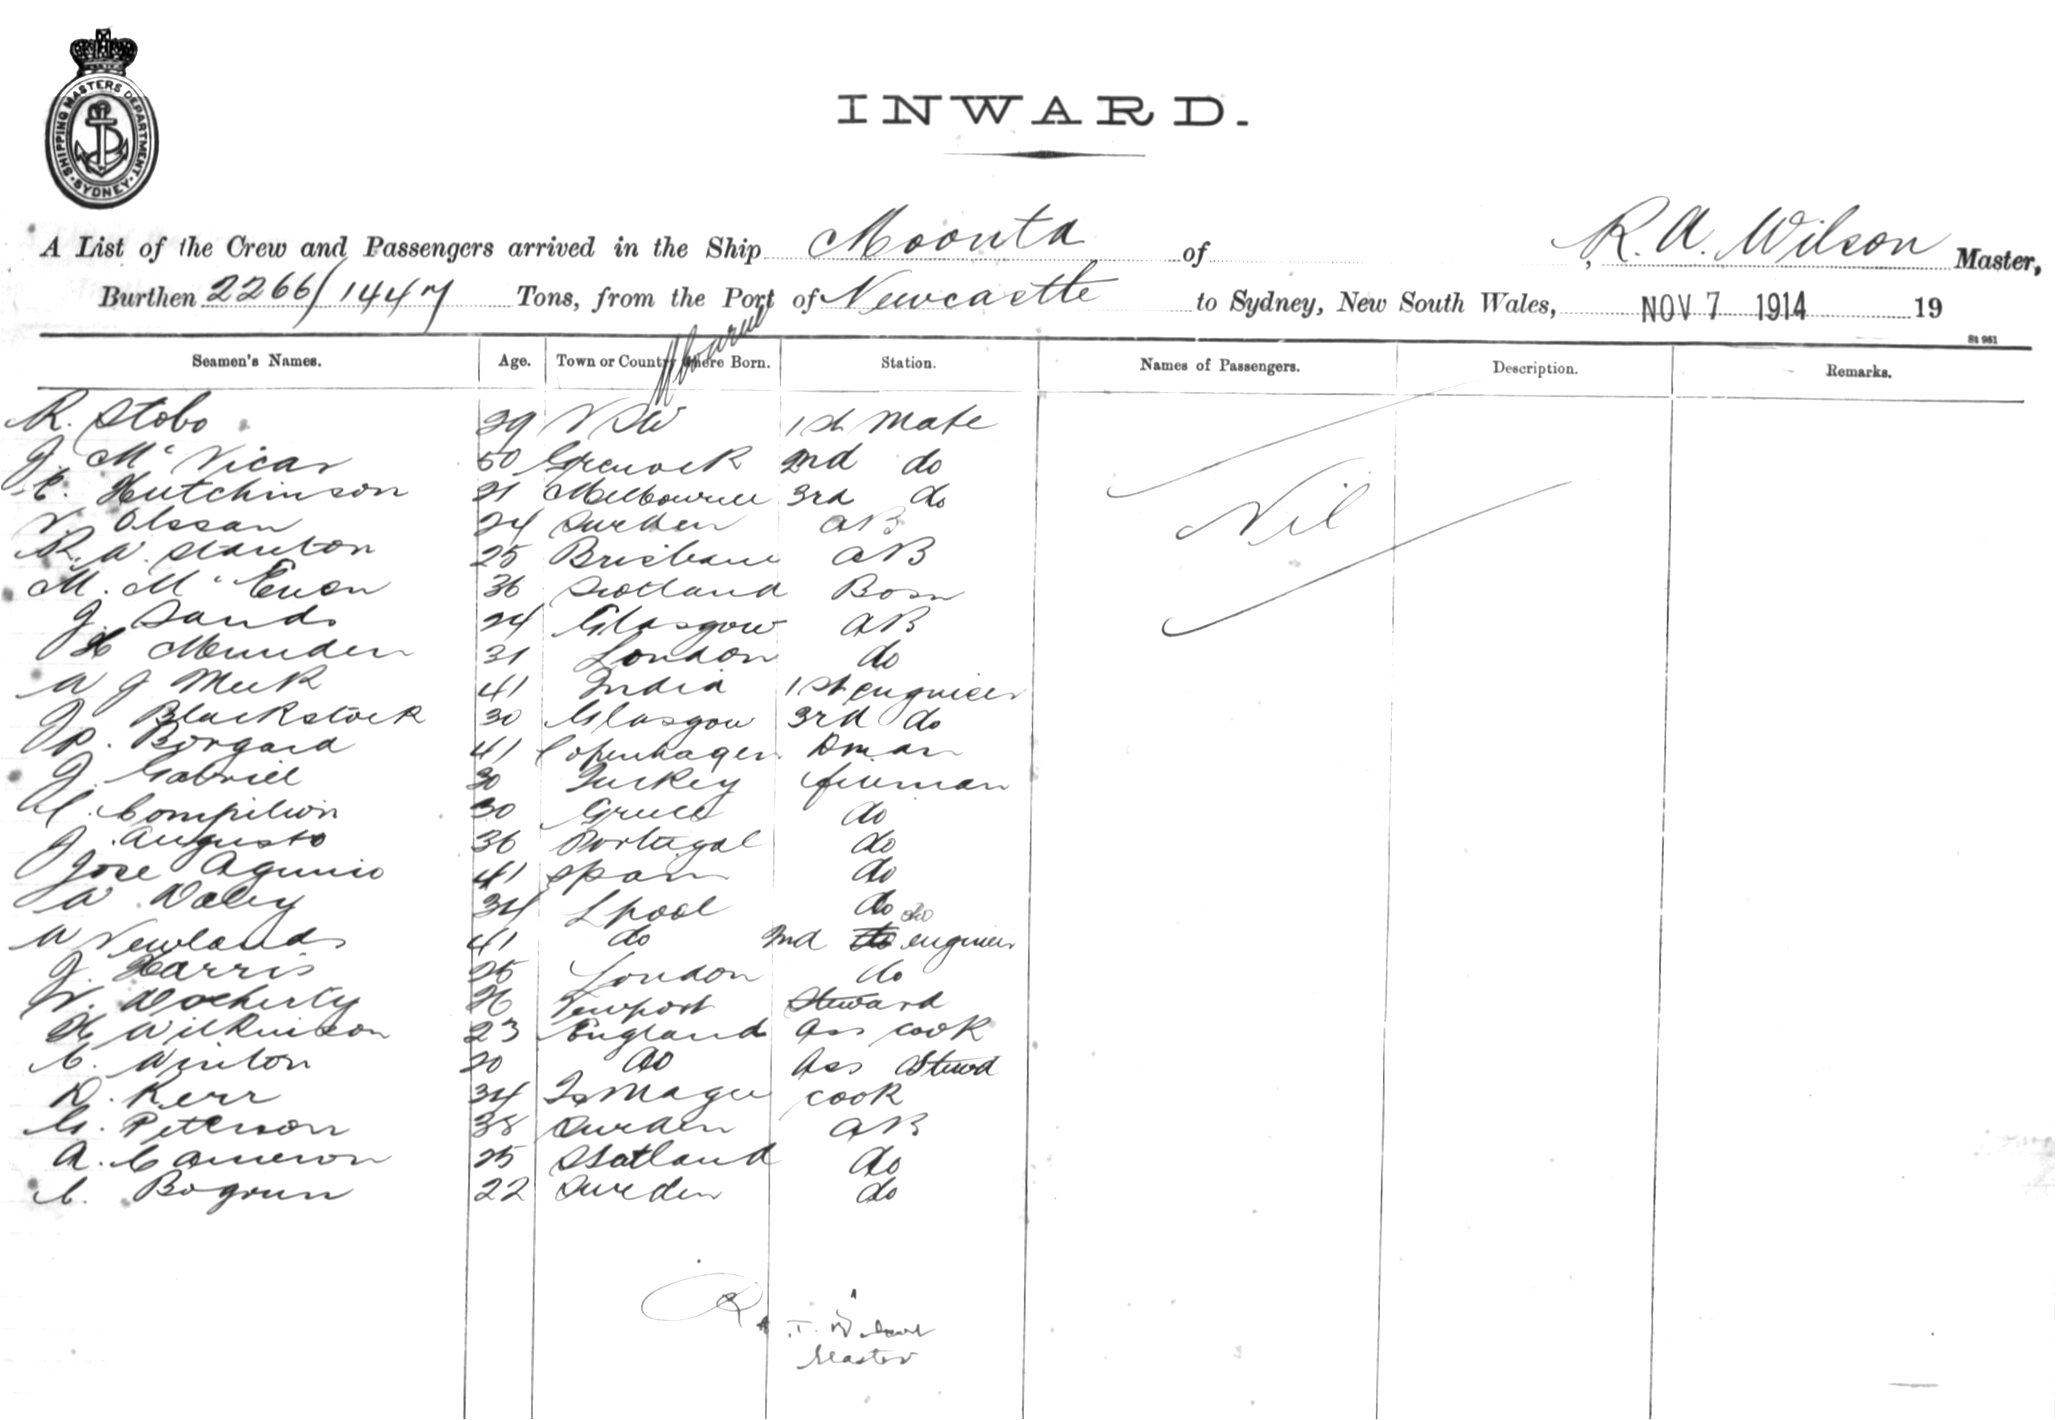 SHIPPING MASTERS DEPARTMENT
SYDNEY
INWARD.
A List of the Crew and Passengers arrived in the Ship Moonta of R. A. Wilson Master,
Burthen 2266/1447 Tons, from the Port of Newcastle to Sydney, New South Wales, NOV 7 1914 19
St 961
Seamen's Names. Age. Town or Country where Born. Station. Names of Passengers. Description. Remarks.
R. Stobo 39 NSW 1st Mate
J. McVicar 50 Greenock 2nd do
C. Hutchinson 21 Melbourne 3rd do
V. Olssan 24 Sweden AB
R. W. Stanton 25 Brisbane AB
M. McEuen 36 Scotland Bosn
J. Sands 24 Glasgow AB
H Munden 31 London do
A J Meek 41 India 1st Engineer
J. Blackstock 30 Glasgow 3rd do
P. Borgard 41 Copenhagen Dman
J. Gabriel 30 Turkey fireman
30 Greece do
J. Augusto 36 Portugal do
Jose 41 Spain do
W Daley 34 Lpool do do
W Newlands 41 do 2nd do engineer
J. Harris 25 London do
W. Docherty 26 Newport Steward
H Wilkinson 23 England Ass cook
C. Winton 20 do Ass Stewd
D. Kerr 34 cook
G. Peterson 38 Sweden AB
A. Cameron 25 Scotland do
C. 22 Sweden do
Nil
Master